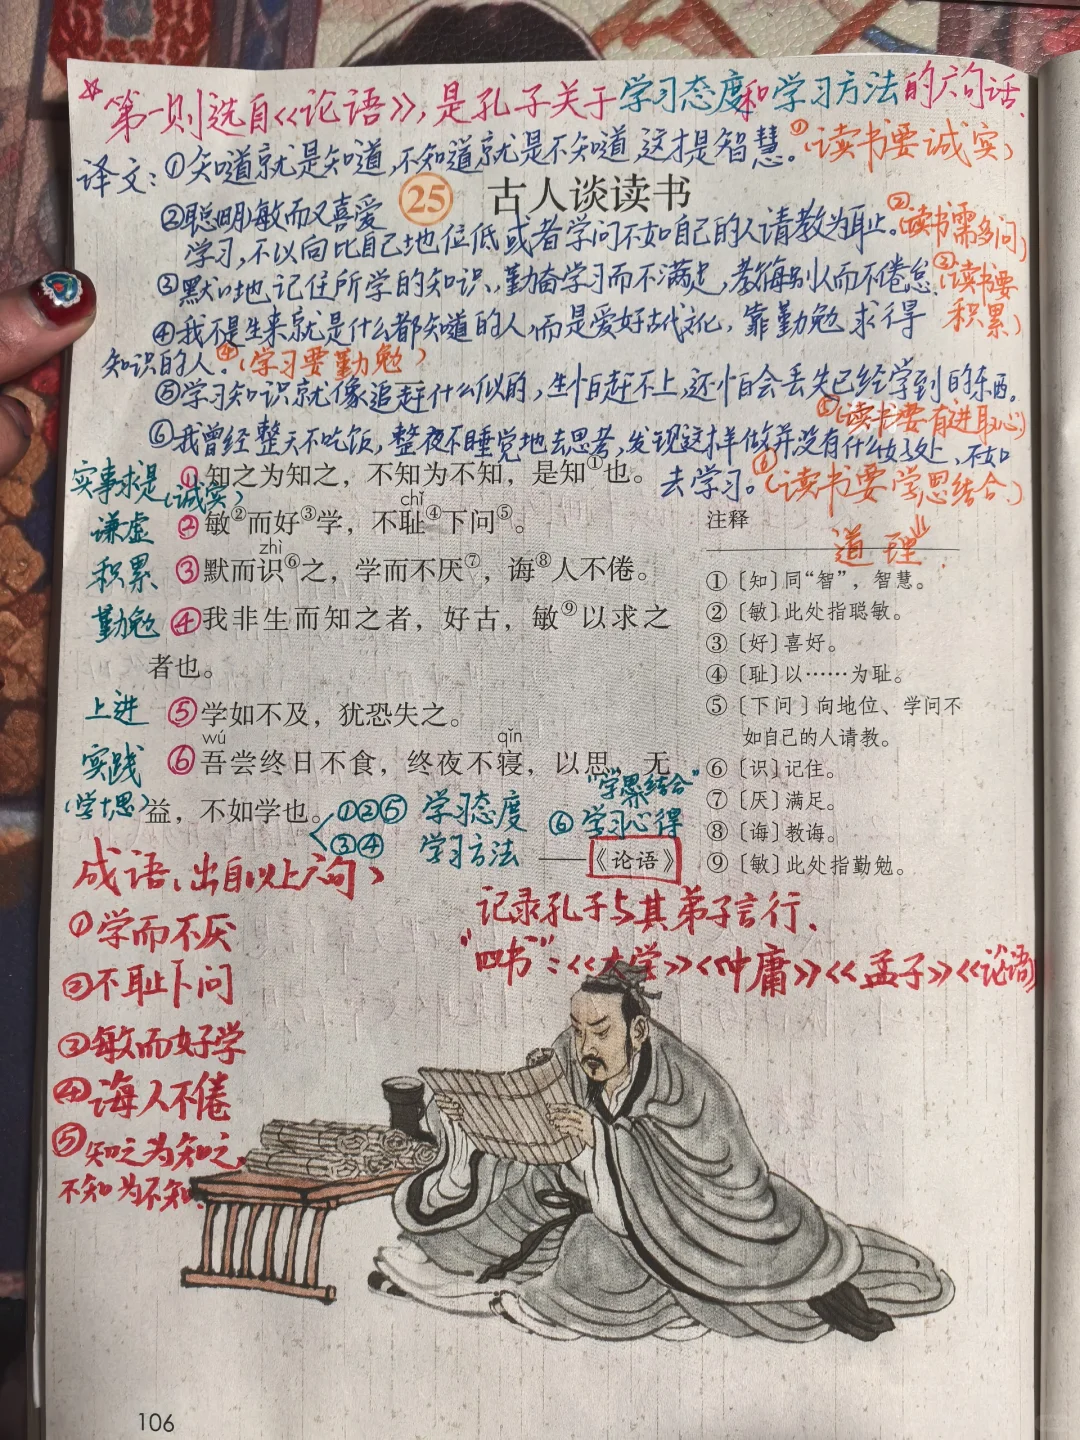 ☆第一则选自《论语》,是孔子关于学习态度和学习方法的六句话.
译文:①知道就是知道,不知道就是不知道,这才是智慧。①(读书要诚实)
25 古人谈读书
②聪明敏而又喜爱
学习,不以向比自己地位低或者学问不如自己的人请教为耻。②(读书需多问)
③默默地记住所学的知识,勤奋学习而不满足,教诲别人而不倦怠.③(读书要
积累)
④我不是生来就是什么都知道的人,而是爱好古代文化,靠勤勉求得
知识的人。④(学习要勤勉)
⑤学习知识就像追赶什么似的,生怕赶不上,还怕会丢失已经学到的东西。
⑤(读书要有进取心)
⑥我曾经整天不吃饭,整夜不睡觉地去思考,发现这样做并没有什么好处,不如
去学习。⑥(读书要学思结合)
道理
实事求是(诚实)
①知之为知之,不知为不知,是知①也。
chǐ
谦虚 ②敏②而好③学,不耻④下问⑤。
zhì
积累 ③默而识⑥之,学而不厌⑦,诲⑧人不倦。
勤勉 ④我非生而知之者,好古,敏⑨以求之
者也。
上进 ⑤学如不及,犹恐失之。
wú qǐn
实践 ⑥吾尝终日不食,终夜不寝,以思,无
(学+思)益,不如学也。
①②⑤ 学习态度
③④ 学习方法
"学思结合"
⑥学习心得
——《论语》
注释
①〔知〕同“智”,智慧。
②〔敏〕此处指聪敏。
③〔好〕喜好。
④〔耻〕以……为耻。
⑤〔下问〕向地位、学问不
如自己的人请教。
⑥〔识〕记住。
⑦〔厌〕满足。
⑧〔诲〕教诲。
⑨〔敏〕此处指勤勉。
成语(出自以上六句)
①学而不厌
②不耻下问
③敏而好学
④诲人不倦
⑤知之为知之,
不知为不知.
记录孔子与其弟子言行.
"四书":《大学》《中庸》《孟子》《论语》
106